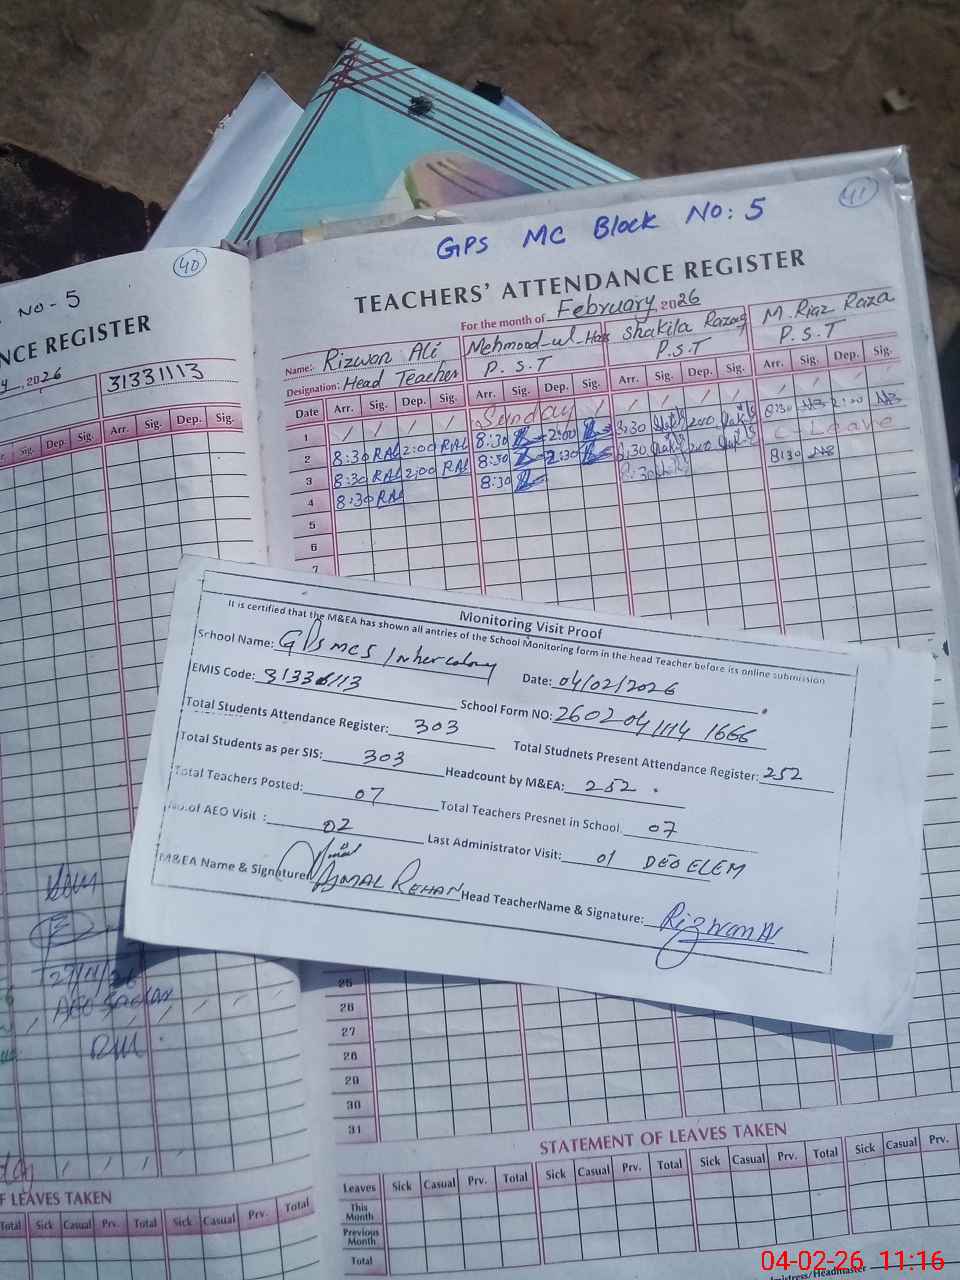 40
41
NO - 5
GPS MC Block No: 5
NCE REGISTER
TEACHERS' ATTENDANCE REGISTER
For the month of February, 2026
y, 2026
31331113
Name: Rizwan Ali
Mehmood-ul-Has
Shakila Razaq
M. Riaz Raza
Designation: Head Teacher
P. S. T
P.S.T
P.S.T
Sig. Dep. Sig. Arr. Sig. Dep. Sig.
Date Arr. Sig. Dep. Sig. Arr. Sig. Dep. Sig. Arr. Sig. Dep. Sig. Arr. Sig. Dep. Sig.
1 Sunday
2 8:30 RAL 2:00 RAL 8:30 2:00 8:30 2:00 8:30 2:00
3 8:30 RAL 2:00 RAL 8:30 2:30 8:30 2:00 C-Leave
4 8:30 RAL 8:30 8:30 8:30
5
6
7
Monitoring Visit Proof
It is certified that the M&EA has shown all antries of the School Monitoring form in the head Teacher before its online submission
School Name: GPS MC5 Inher colony
Date: 04/02/2026
EMIS Code: 31331113
School Form NO: 260204 1114 1666
Total Students Attendance Register: 303
Total Studnets Present Attendance Register: 252
Total Students as per SIS: 303
Headcount by M&EA: 252
Total Teachers Posted: 07
Total Teachers Presnet in School 07
No.of AEO Visit : 02
Last Administrator Visit: 01 DEO ELEM
M&EA Name & Signature AJMAL REHAN
Head TeacherName & Signature: Rizwan
25
26
27
28
29
30
31
STATEMENT OF LEAVES TAKEN
Leaves Sick Casual Prv. Total Sick Casual Prv. Total Sick Casual Prv. Total Sick Casual Prv.
This Month
Previous Month
Total
F LEAVES TAKEN
Total Sick Casual Prv. Total Sick Casual Prv. Total
mistress/Headmaster
04-02-26 11:16